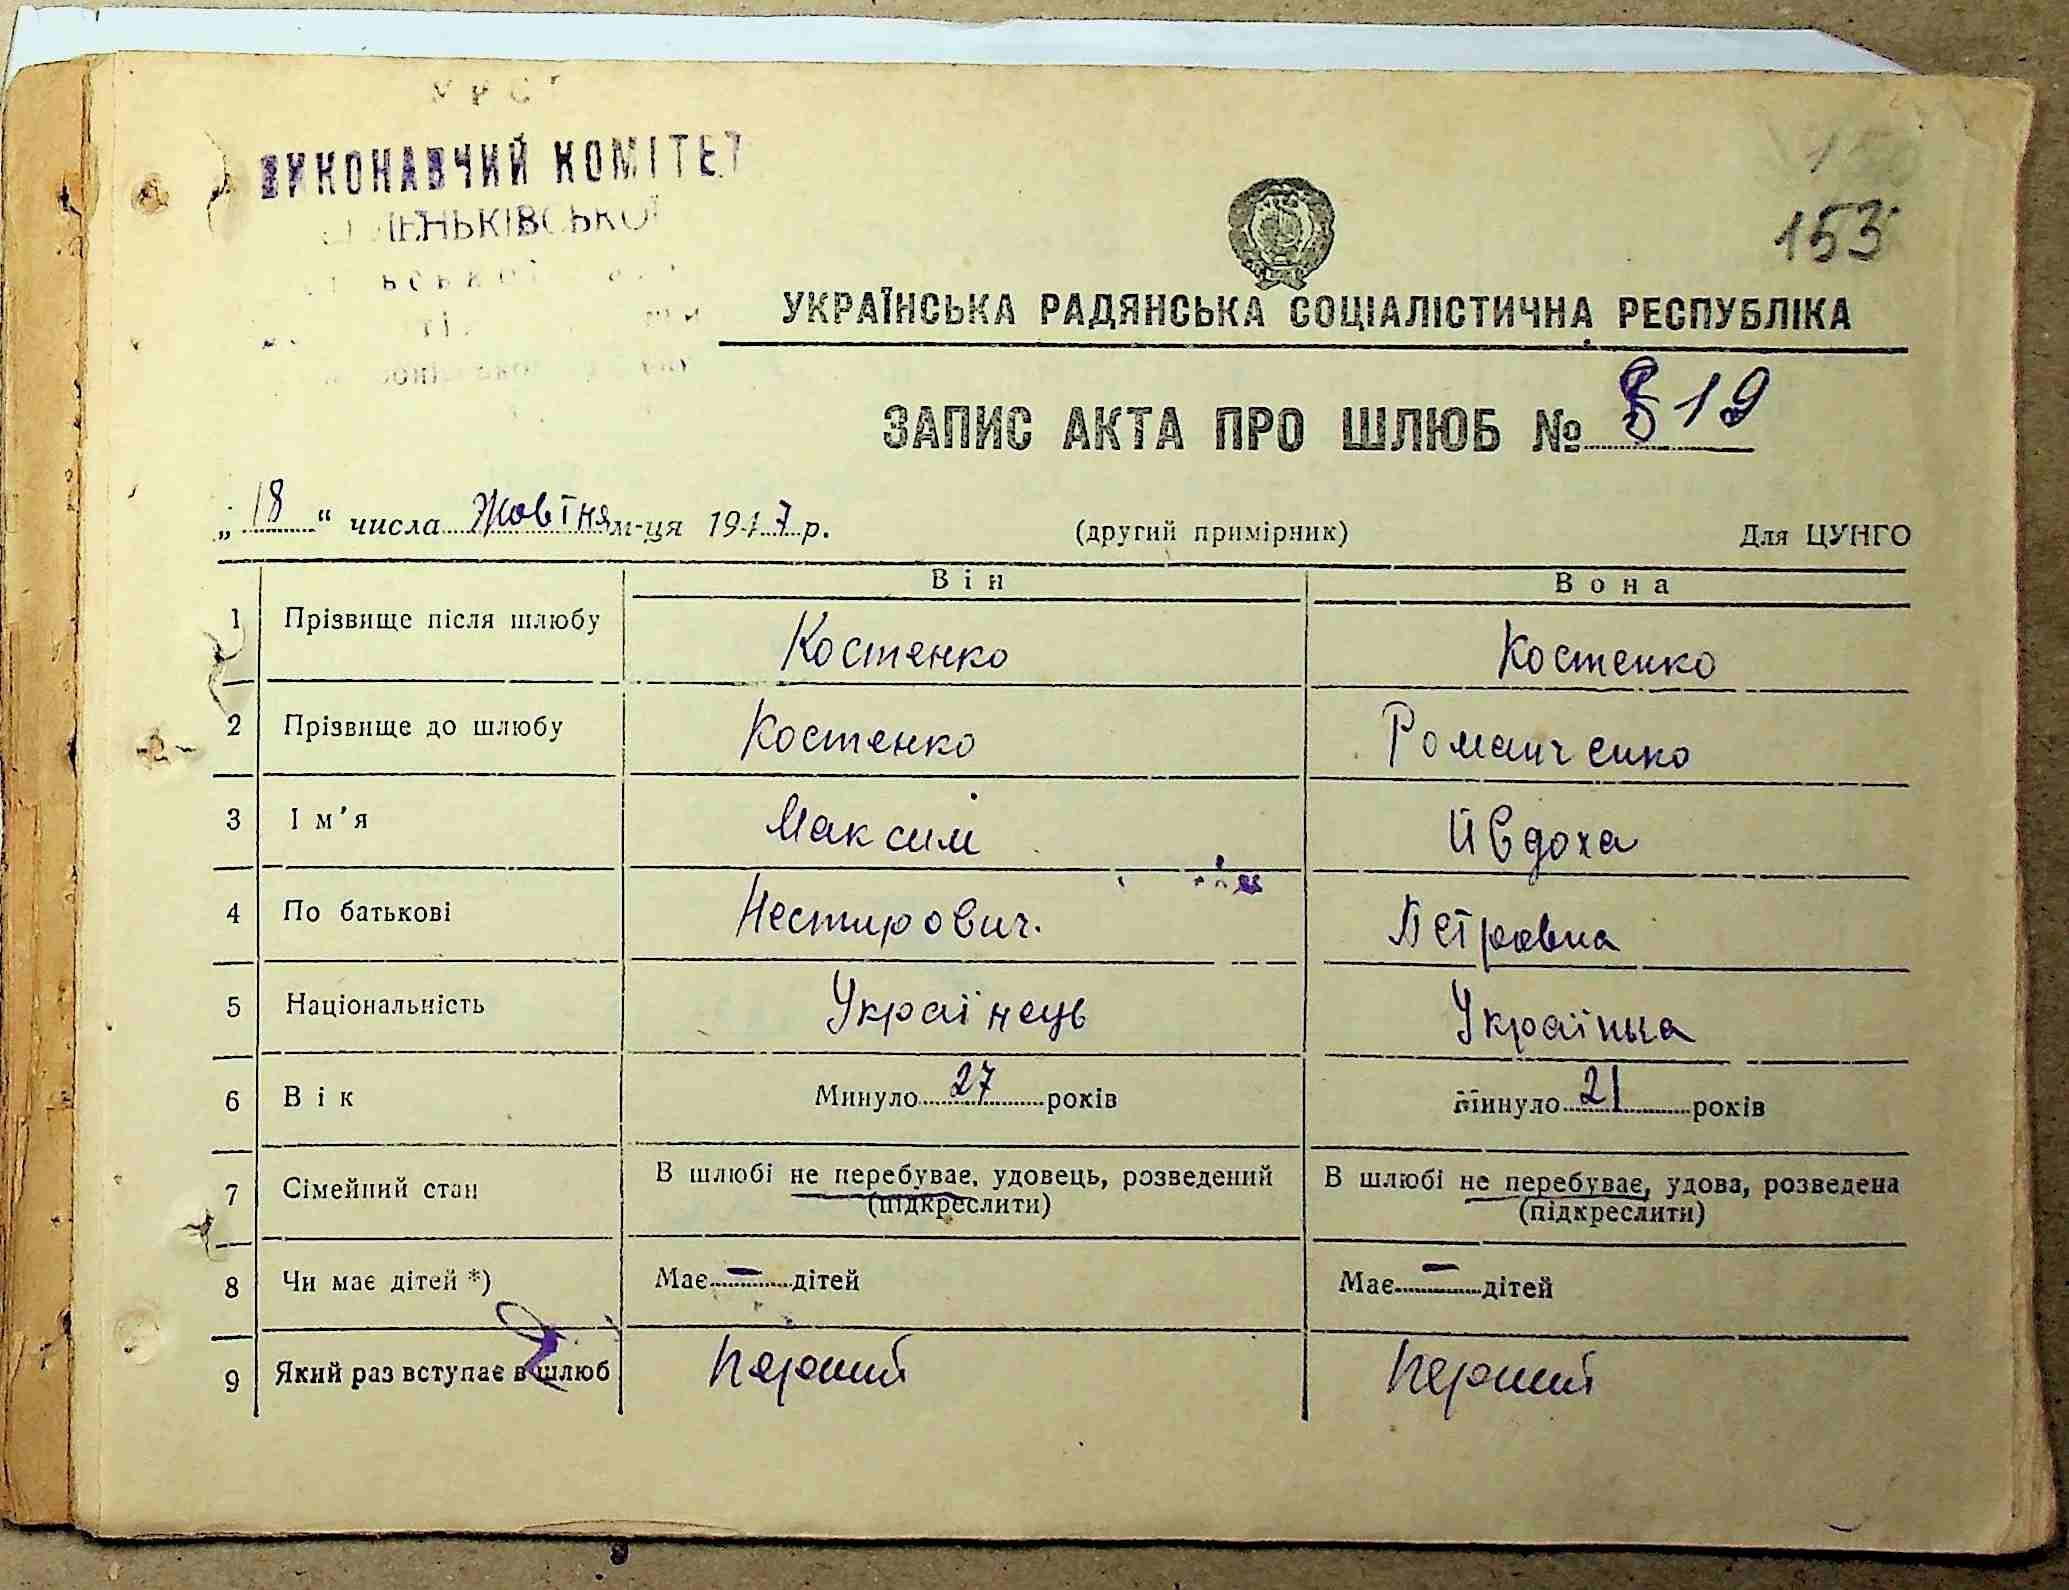 УРС
ВИКОНАВЧИЙ КОМІТЕТ
153
УКРАЇНСЬКА РАДЯНСЬКА СОЦІАЛІСТИЧНА РЕСПУБЛІКА
ЗАПИС АКТА ПРО ШЛЮБ № 19
„18“ числа Жовтня м-ця 1947 р. (другий примірник) Для ЦУНГО
Він Вона
1 Прізвище після шлюбу Костенко Костенко
2 Прізвище до шлюбу Костенко Романченко
3 Ім'я Максим Йвдоха
4 По батькові Нестирович. Петровна
5 Національність Українець Українка
6 Вік Минуло 27 років Минуло 21 років
7 Сімейний стан В шлюбі не перебуває, удовець, розведений (підкреслити) В шлюбі не перебуває, удова, розведена (підкреслити)
8 Чи має дітей *) Має — дітей Має — дітей
9 Який раз вступає в шлюб Перший Перший